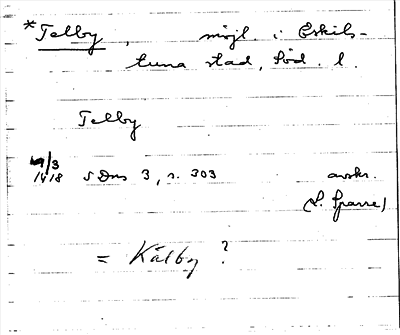 *Telby, möjl. i Eskils-
tuna stad, Söd. l.
Telby
/3
1418 SDns 3, s. 303 avskr.
(L Sparre)
= Kälby ?